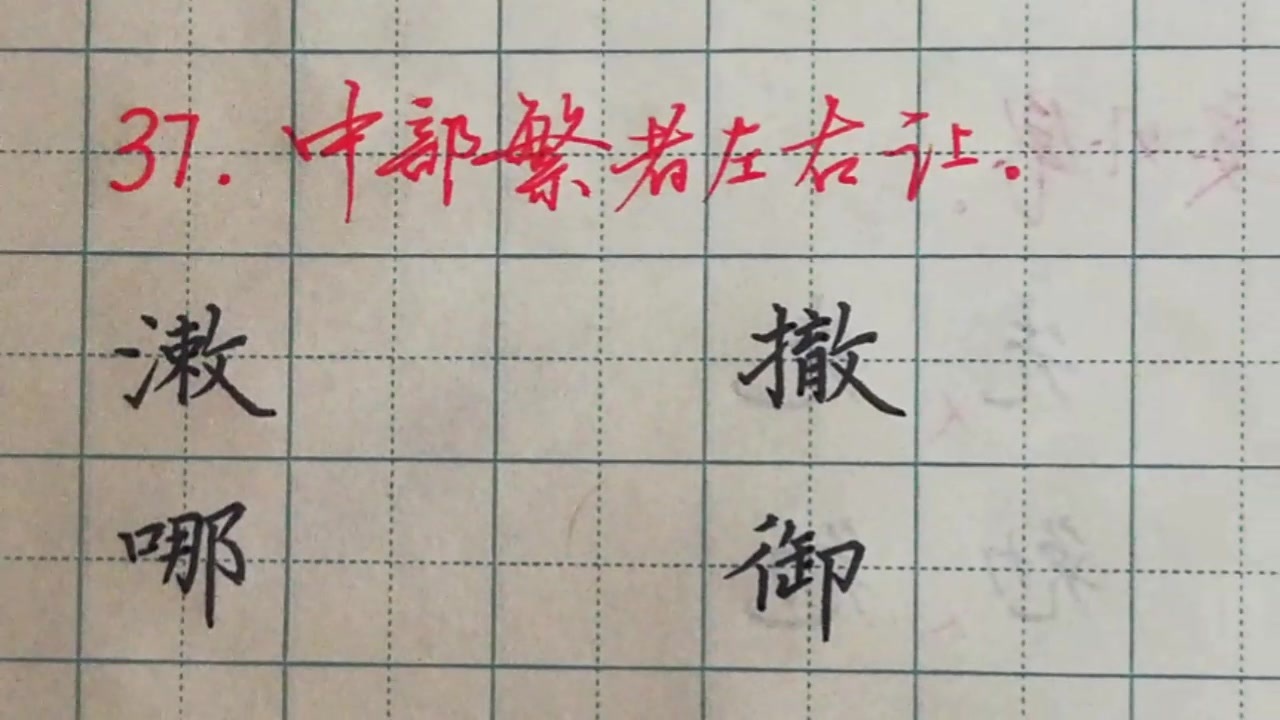 37. 中部繁者左右让.
漱 撤
哪 御